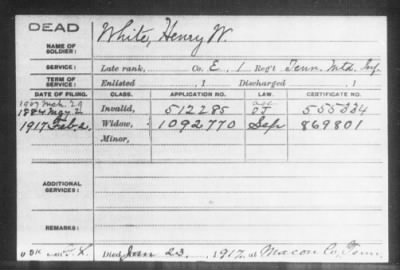 DEAD
NAME OF SOLDIER: White, Henry W.
SERVICE: Late rank, Co. E, 1 Reg't Tenn. Mtd. Inf.
TERM OF SERVICE: Enlisted , 1 Discharged , 1
DATE OF FILING. CLASS. APPLICATION NO. LAW. CERTIFICATE NO.
1907 Mch. 29
1884 May 2 Invalid, 512285 555334
1917 Feb. 2 Widow, 1092770 Sep 869801
Minor,
ADDITIONAL SERVICES:
REMARKS:
Died Jan 23, 1917, at Macon Co. Tenn.